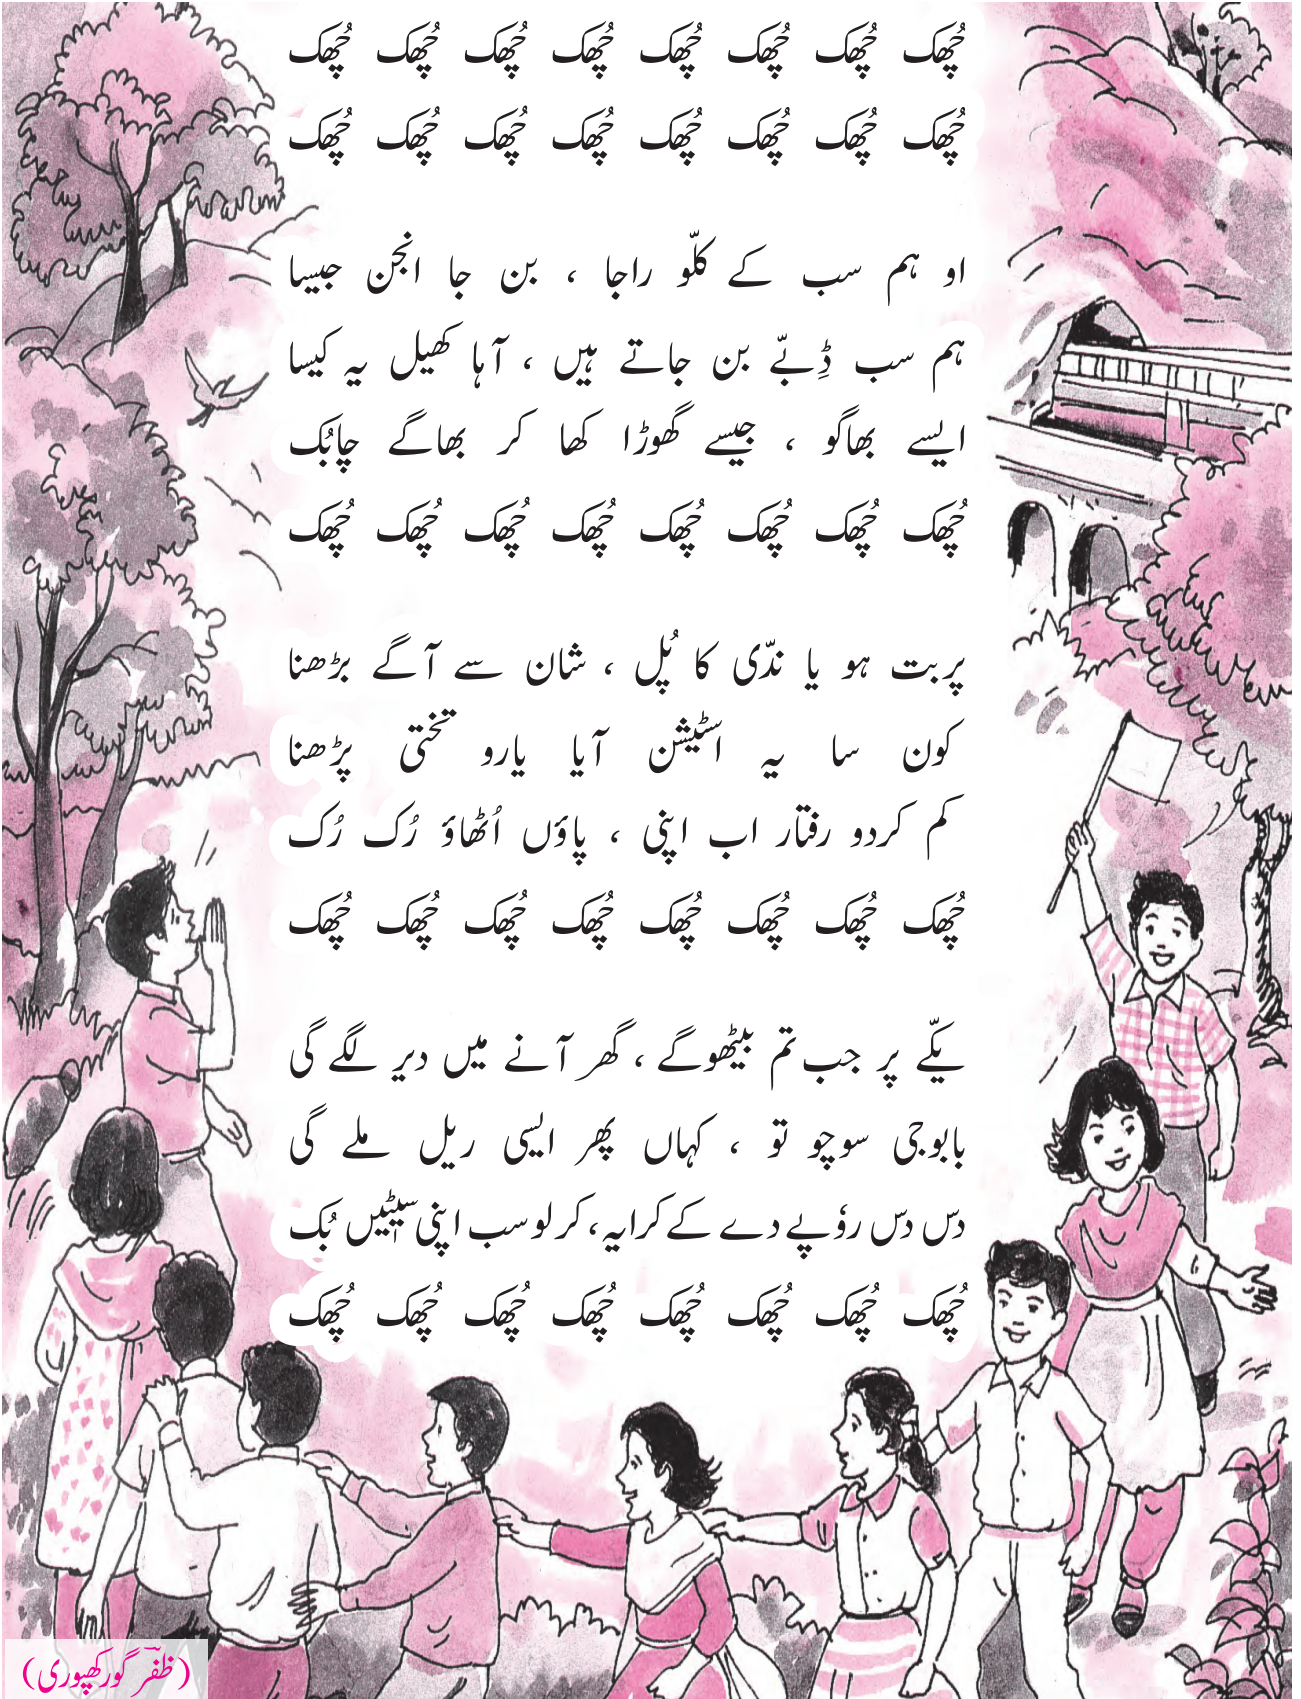 چُھک چُھک چُھک چُھک چُھک چُھک چُھک چُھک
چُھک چُھک چُھک چُھک چُھک چُھک چُھک چُھک
او ہم سب کے کلّو راجا ، بن جا انجن جیسا
ہم سب ڈِبّے بن جاتے ہیں ، آہا کھیل یہ کیسا
ایسے بھاگو ، جیسے گھوڑا کھا کر بھاگے چابُک
چُھک چُھک چُھک چُھک چُھک چُھک چُھک چُھک
پربت ہو یا ندّی کا پُل ، شان سے آگے بڑھنا
کون سا یہ اسٹیشن آیا یارو تختی پڑھنا
کم کردو رفتار اب اپنی ، پاؤں اُٹھاؤ رُک رُک
چُھک چُھک چُھک چُھک چُھک چُھک چُھک چُھک
یکّے پر جب تم بیٹھوگے ، گھر آنے میں دیر لگے گی
بابوجی سوچو تو ، کہاں پھر ایسی ریل ملے گی
دس دس روٗپے دے کے کرایہ ، کر لو سب اپنی سیٹیں بُک
چُھک چُھک چُھک چُھک چُھک چُھک چُھک چُھک
(ظفرؔ گورکھپوری)